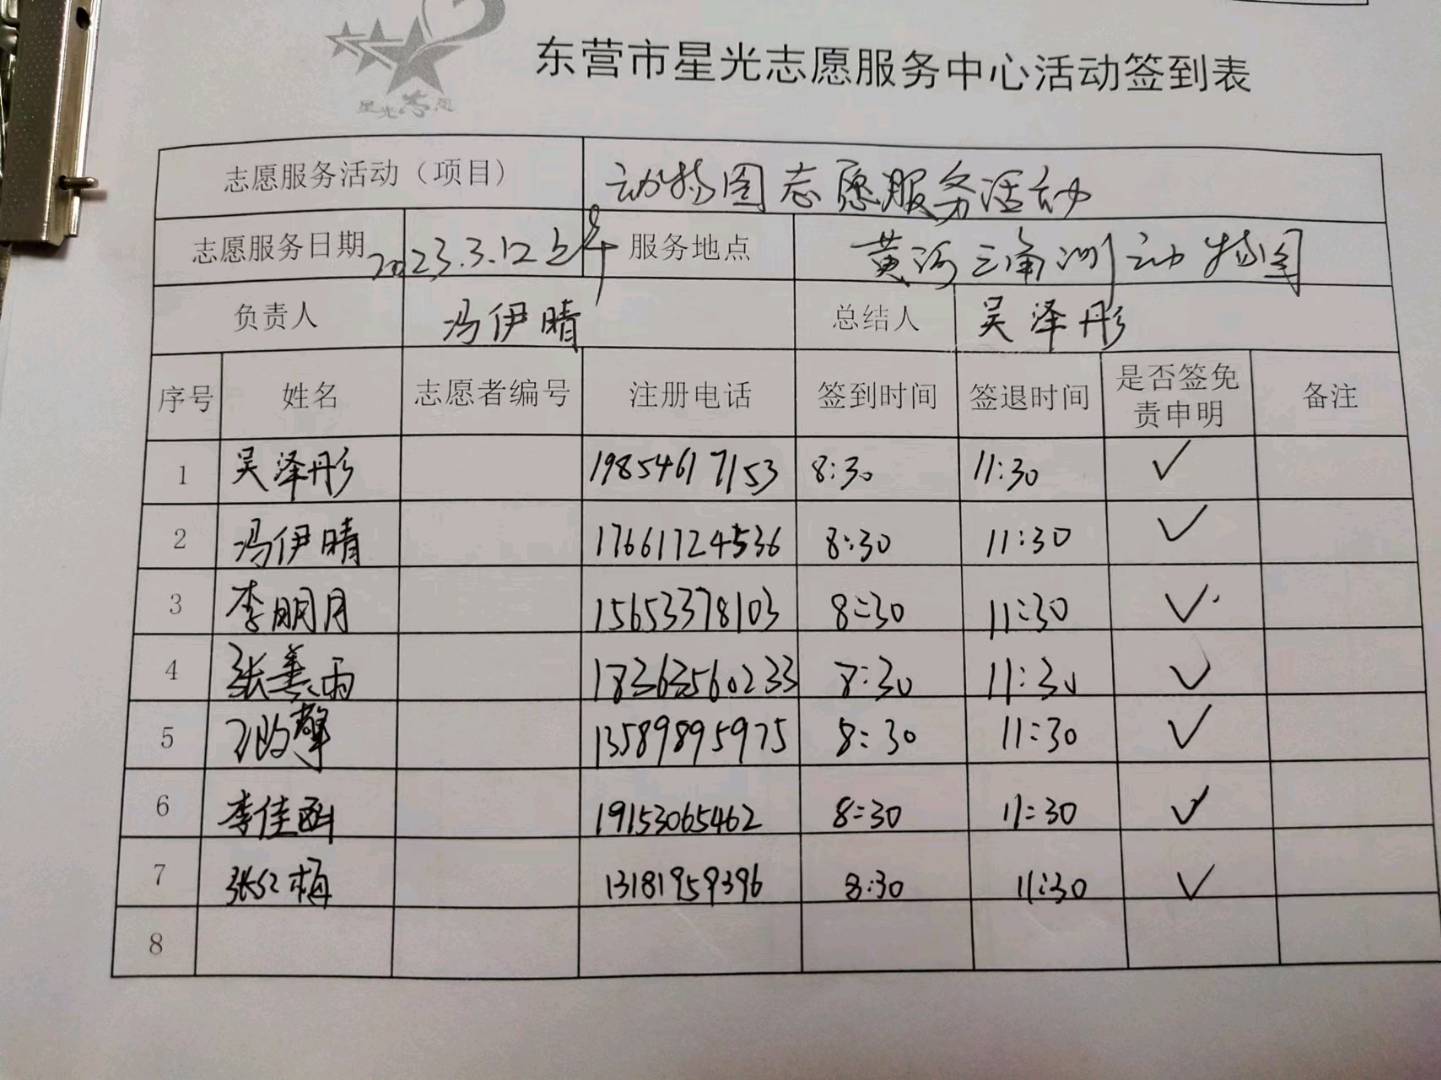 星光志愿
东营市星光志愿服务中心活动签到表
志愿服务活动（项目） 动物园志愿服务活动
志愿服务日期 2023.3.12上午 服务地点 黄河三角洲动物园
负责人 冯伊晴 总结人 吴泽彤
序号 姓名 志愿者编号 注册电话 签到时间 签退时间 是否签免责申明 备注
1 吴泽彤 19854617153 8:30 11:30 ✓
2 冯伊晴 17661724536 8:30 11:30 ✓
3 李明月 15653378103 8:30 11:30 ✓
4 张美雨 18363560233 8:30 11:30 ✓
5 13589895975 8:30 11:30 ✓
6 李佳函 19153065462 8:30 11:30 ✓
7 张红梅 13181959396 8:30 11:30 ✓
8